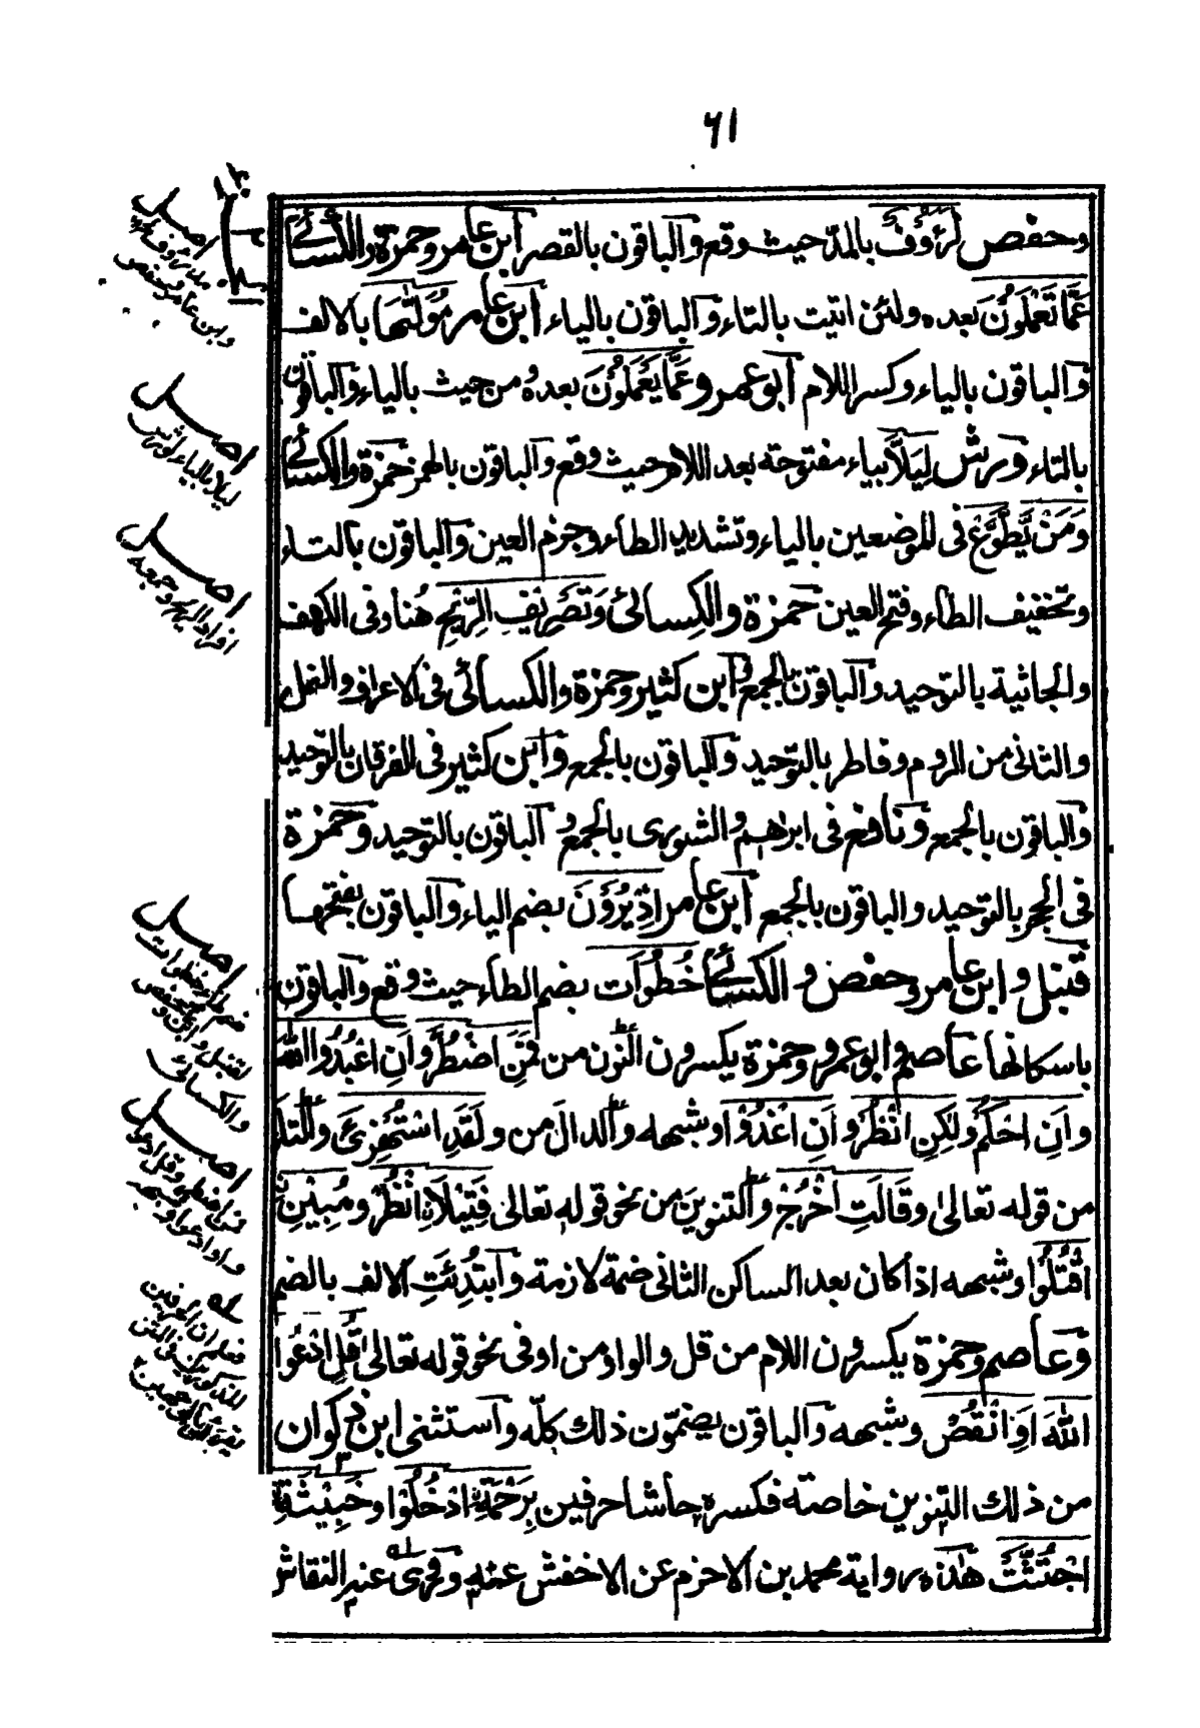 ٦١
وحفص لَرَءُوْفٌ بالمدّ حيث وقع والباقون بالقصر ابن عامر وحمزة والكسائى
عَمَّا تَعْمَلُوْنَ بعده ولئن اتيت بالتاء والباقون بالياء ابن عامر مُوَلّٰىهَا بالالف
والباقون بالياء وكسر اللام ابو عمرو عَمَّا يَعْمَلُوْنَ بعده ومن حيث بالياء والباقون
بالتاء ورش لِيَلَّا بياء مفتوحة بعد اللام حيث وقع والباقون بالهمز حمزة والكسائى
وَمَنْ يَّطَّوَّعْ فى الموضعين بالياء وتشديد الطاء وجزم العين والباقون بالتاء
وتخفيف الطاء وفتح العين حمزة والكسائى وَتَصْرِيْفِ الرِّيْحِ هُنا وفى الكهف
والجاثية بالتوحيد والباقون بالجمع وابن كثير وحمزة والكسائى فى الاعراف والنمل
والثانى من الروم وفاطر بالتوحيد والباقون بالجمع وابن كثير فى الفرقان بالتوحيد
والباقون بالجمع ونافع فى ابراهيم والشورى بالجمع و الباقون بالتوحيد وحمزة
فى الحجر بالتوحيد والباقون بالجمع ابن عامر اِذْ يُرَوْنَ بضم الياء والباقون بفتحها
قنبل وابن عامر وحفص والكسائى خُطُوَات بضم الطاء حيث وقع والباقون
باسكانها عاصم وابو عمرو وحمزة يكسرون النون من فَمَنِ اضْطُرَّ وَاَنِ اعْبُدُوا اللهَ
وَاَنِ احْكُمْ وَلٰكِنِ انْظُرْ وَاَنِ اغْدُوْا وشبهه والدال من وَلَقَدِ اسْتُهْزِئَ والتاء
من قوله تعالى وقَالَتِ اخْرُجْ والتنوين من نحو قوله تعالى فَتِيْلَانِ انْظُرْ ومُبِيْنِ
اقْتُلُوْا وشبهه اذا كان بعد الساكن الثانى ضمة لازمة وابتُدِئَتِ الالف بالضم
وعاصم وحمزة يكسرون اللام من قل والواو من او فى نحو قوله تعالى قُلِ ادْعُوا
اللهَ اَوِ انْقُصْ وشبهه والباقون يضمّون ذلك كلّه واستثنى ابن ذكوان
من ذلك التنوين خاصة فكسره حاشا حرفين بِرَحْمَةِ ادْخُلُوْا وخَبِيْثَةِ
اجْتُثَّتْ هذه رواية محمد بن الاخرم عن الاخفش عنه وقرئ عند النقاش
اصل
وابن عامر وحفص
اصل
ليلا بالياء لورش
اصل
افراد الريح وجمعه
اصل
ضم طاء خطوات
لقنبل وابن وحفص
والكسائى
اصل